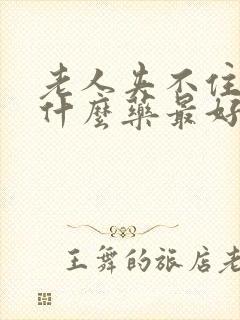 老人夹不住
什麼藥最好
王舞的旅店老